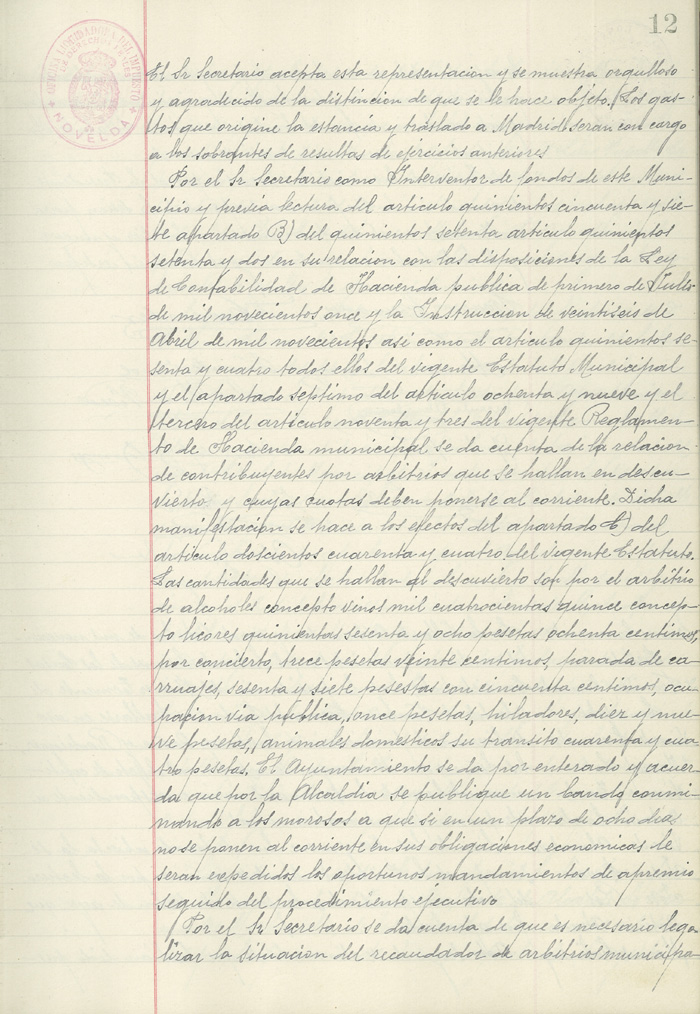 12
OFICINA LIQUIDADORA DEL IMPUESTO
DE DERECHOS REALES
NOVELDA
El Sr Secretario acepta esta representacion y se muestra orgulloso
y agradecido de la distincion de que se le hace objeto. Los gas-
tos que origine la estancia y traslado a Madrid seran con cargo
a los sobrantes de resultas de ejercicios anteriores
Por el Sr Secretario como Interventor de fondos de este Muni-
cipio y previa lectura del articulo quinientos cincuenta y sie-
te apartado B) del quinientos setenta articulo quinientos
setenta y dos en su relacion con las disposiciones de la Ley
de Contabilidad de Hacienda publica de primero de Julio
de mil novecientos once y la Instruccion de veintiseis de
Abril de mil novecientos asi como el articulo quinientos se-
senta y cuatro todos ellos del vigente Estatuto Municipal
y el apartado septimo del articulo ochenta y nueve y el
tercero del articulo noventa y tres del vigente Reglamen-
to de Hacienda municipal se da cuenta de la relacion
de contribuyentes por arbitrios que se hallan en descu-
vierto y cuyas cuotas deben ponerse al corriente. Dicha
manifestacion se hace a los efectos del apartado E) del
articulo doscientos cuarenta y cuatro del vigente Estatuto.
Las cantidades que se hallan al descuvierto son por el arbitrio
de alcoholes concepto vinos mil cuatrocientas quince concep-
to licores quinientas sesenta y ocho pesetas ochenta centimos,
por concierto, trece pesetas veinte centimos, parada de ca-
rruajes, sesenta y siete pesestas con cincuenta centimos, ocu
pacion via publica, once pesetas, hiladores, diez y nue-
ve pesetas, animales domesticos su transito cuarenta y cua
tro pesetas. El Ayuntamiento se da por enterado y acuer-
da que por la Alcaldia se publique un bando conmi
nando a los morosos a que si en un plazo de ocho dias
no se ponen al corriente en sus obligaciones economicas le
seran expedidos los oportunos mandamientos de apremio
seguido del procedimiento ejecutivo
Por el Sr Secretario se da cuenta de que es necesario lega-
lizar la situacion del recaudador de arbitrios municipa-